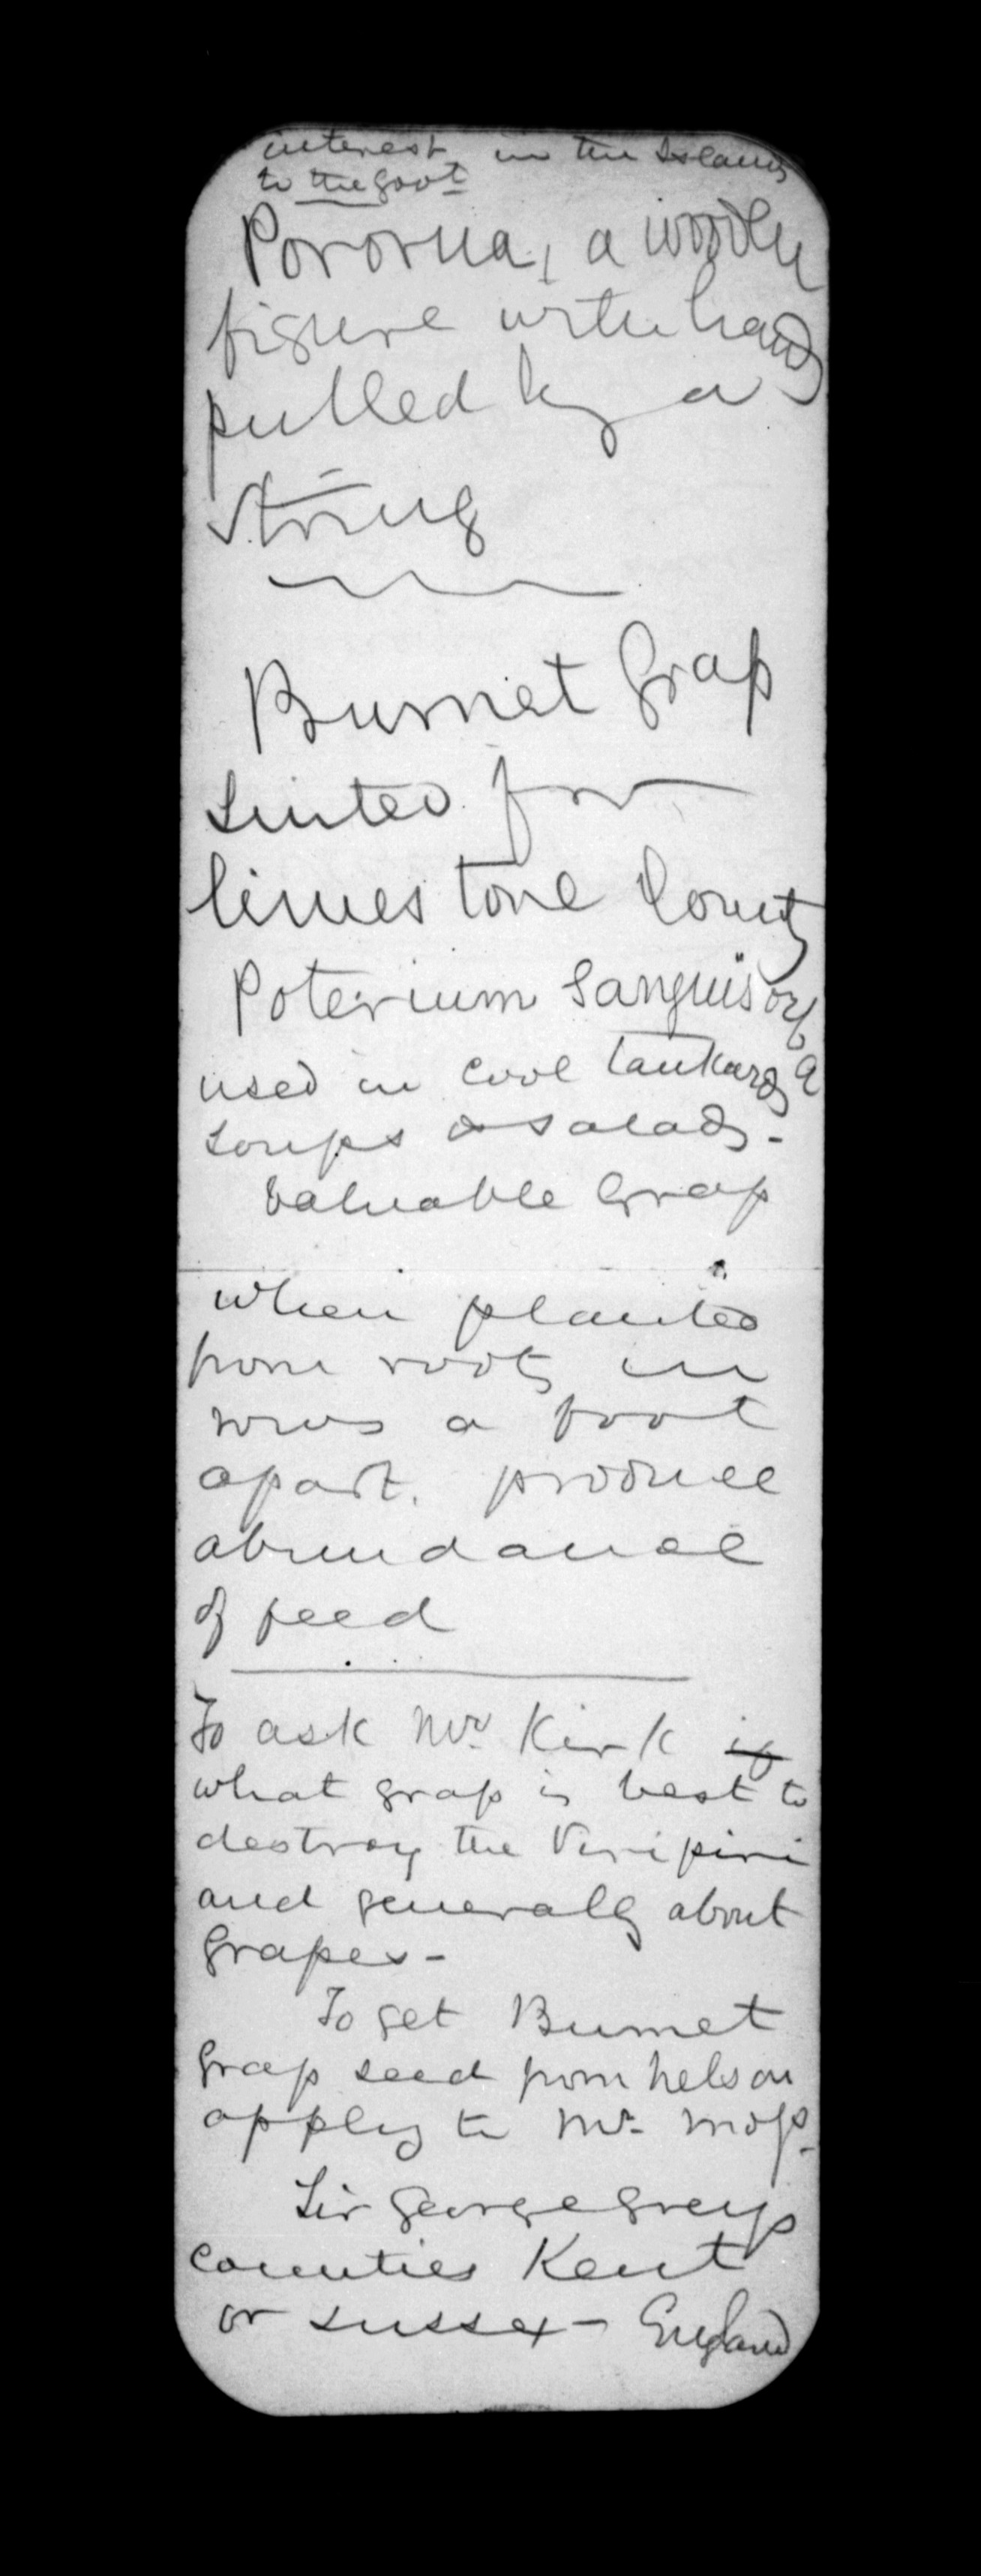 interest in the Islands
to the Govt
Pororua, a wooden
figure with hands
pulled by a
string
Burnet Grass
suited for
limestone County
Poterium Sanguisorba
used in cool tankards
soups & salads -
Valuable Grass
when planted
from roots in
rows a foot
apart. produce
abundance
of feed
To ask Mr. Kirk if
what grass is best to
destroy the Piripiri
and generally about
Grasses -
To get Burnet
Grass seed from Nelson
apply to Mr. Moss -
Sir George Greys
counties Kent
or Sussex - England